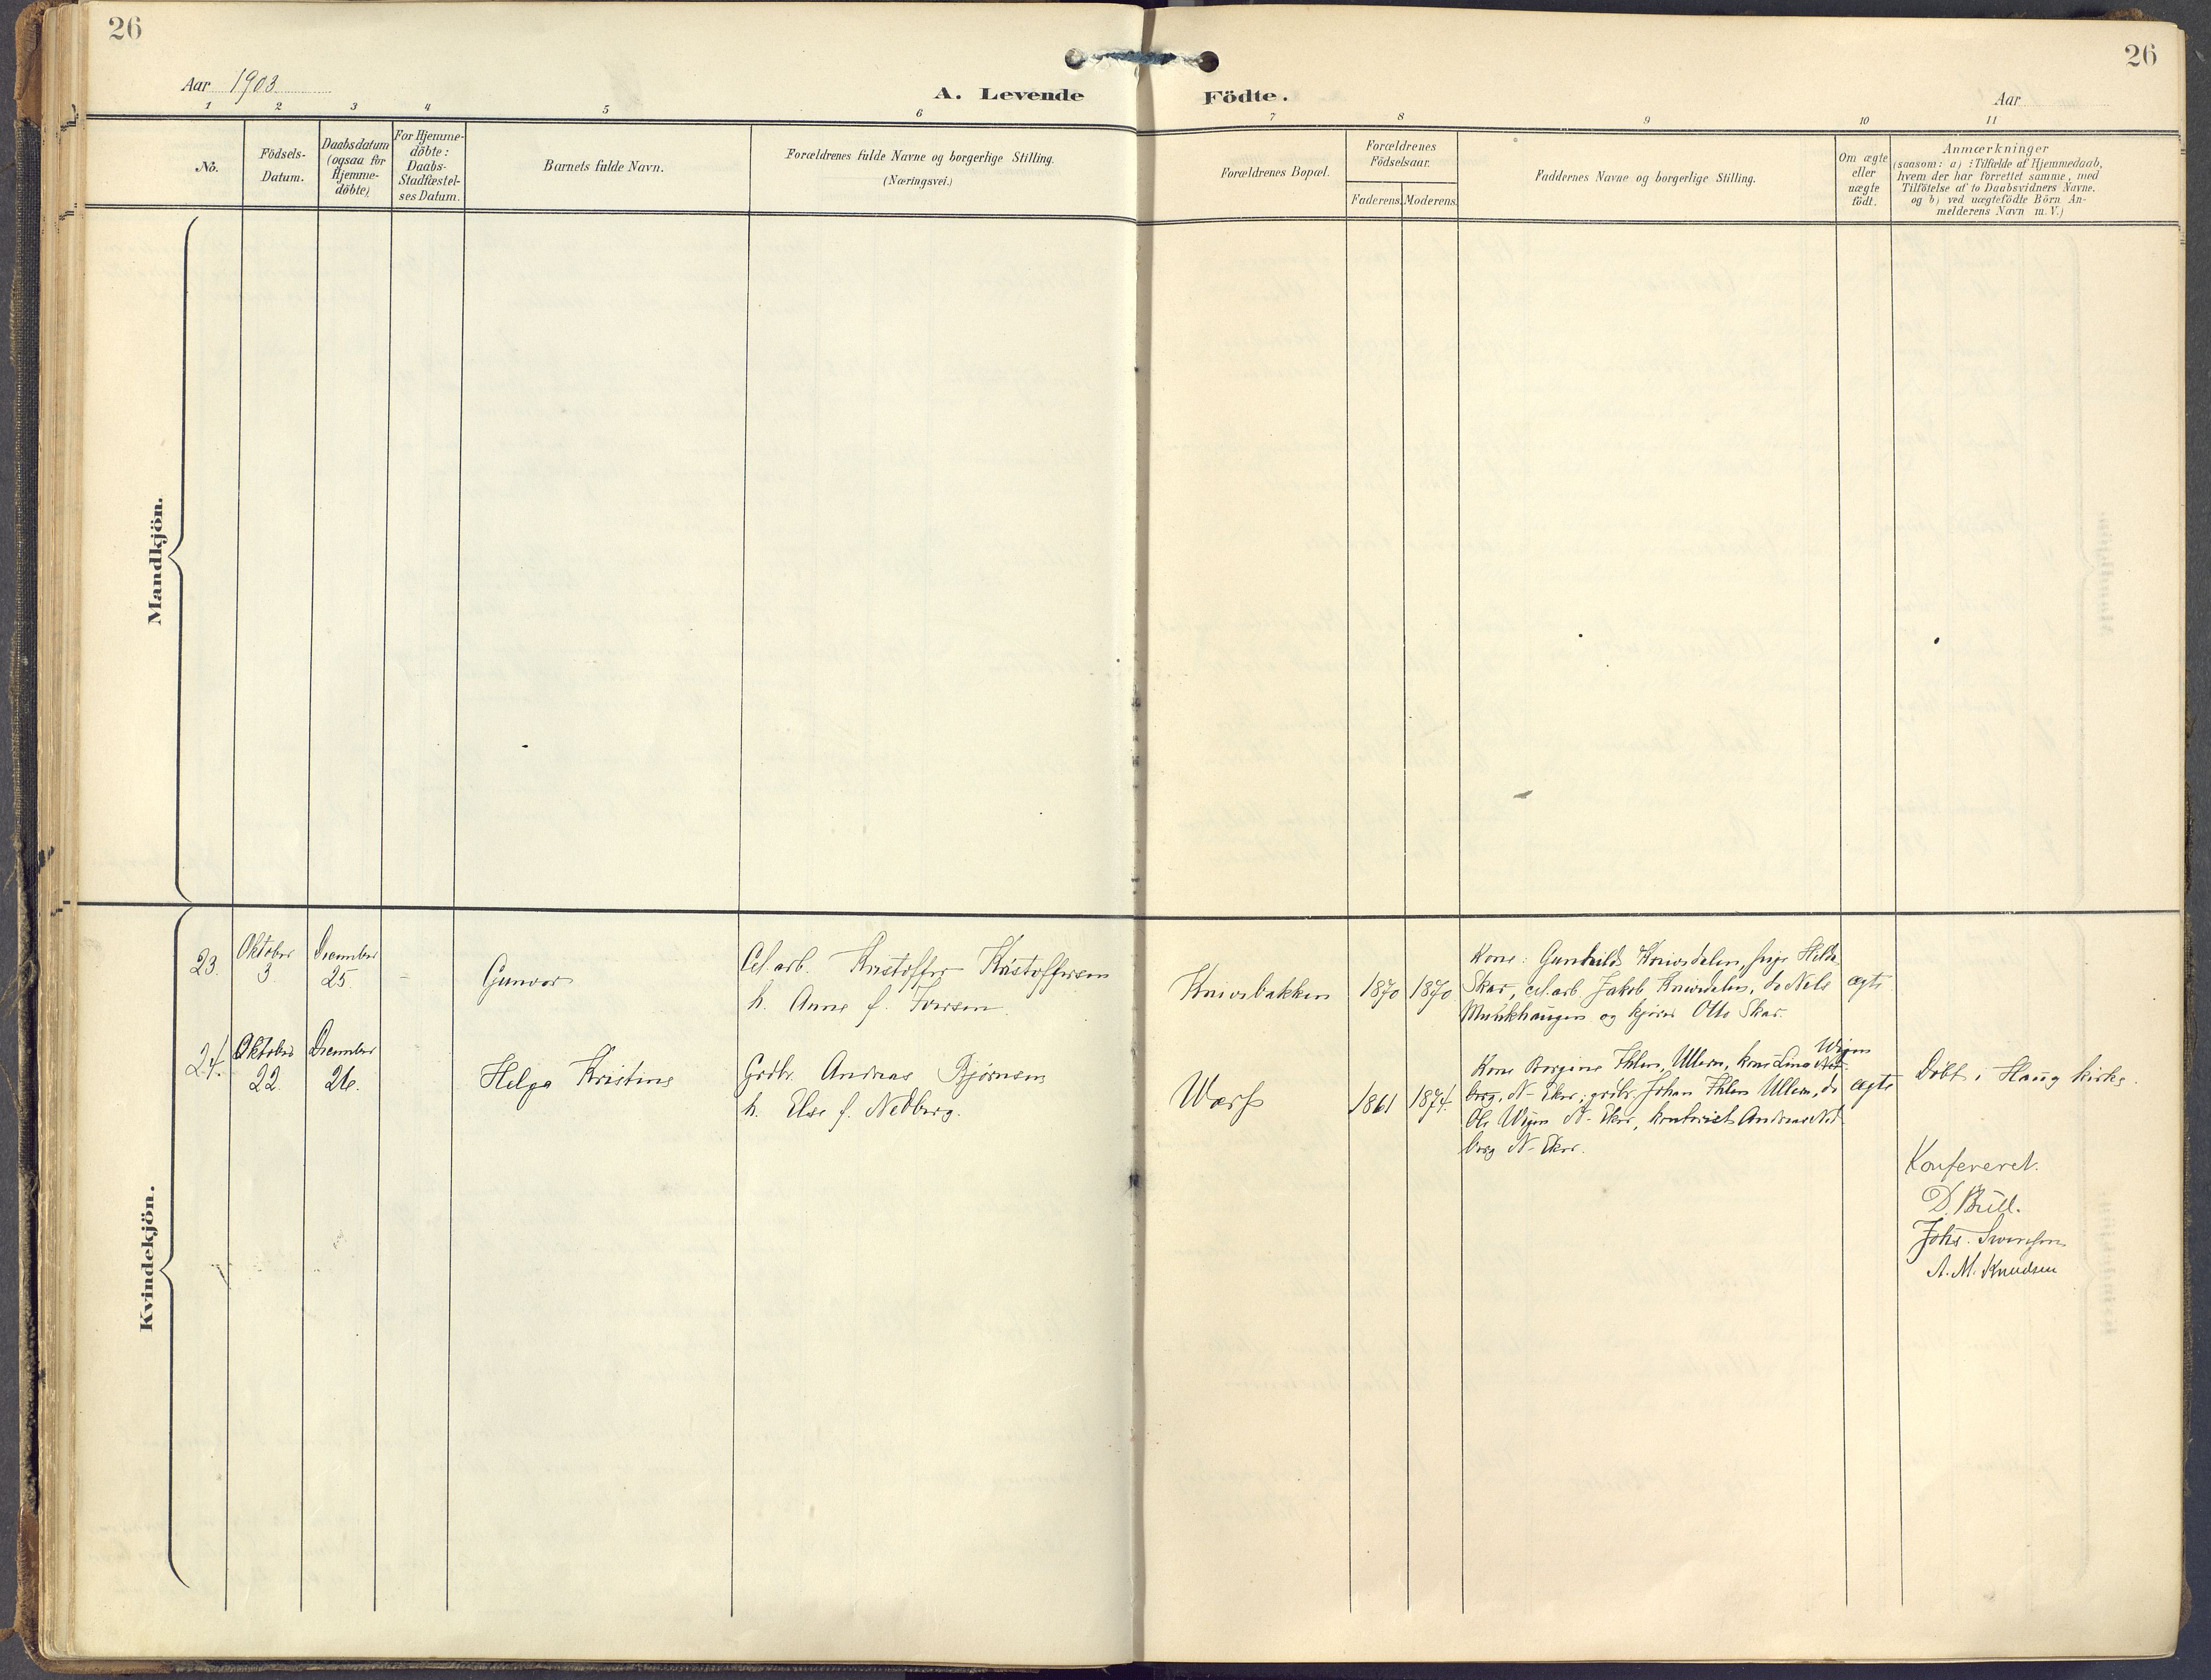 26
26
Aar 1903
A. Levende Födte.
Aar
1 2 3 4 5 6 7 8 9 10 11
No.
Födsels-
Datum.
Daabsdatum
(ogsaa for
Hjemme-
döbte)
For Hjemme-
döbte:
Daabs-
Stadfæstel-
ses Datum.
Barnets fulde Navn.
Forældrenes fulde Navne og borgerlige Stilling.
(Næringsvei.)
Forældrenes Bopæl.
Forældrenes
Födselsaar.
Faderens. Moderens.
Faddernes Navne og borgerlige Stilling.
Om ægte
eller
uægte
födt.
Anmærkninger
(saasom: a) i Tilfælde af Hjemmedaab,
hvem der har forrettet samme, med
Tilfötelse af to Daabsvidners Navne.
og b) ved uægtefödte Börn An-
melderens Navn m. V.)
Mandkjön.
Kvindekjön.
23.
Oktober
3
December
25.
Gunvor
Cel. arb. Kristoffer Kristoffersen
h. Anne f. Iversen.
Kniosbakken
1870
1870
Kone: Gunhild Kniosdalen, pige Helda
Skar, cel. arb. Jakob Kniosdalen, do Nils
Munkhaugen og kjører Otto Skar.
ægte
24.
Oktober
22
December
26.
Helga Kristine
Grdbr. Andreas Bjørnsen
h. Else f. Nedberg.
Warp
1861
1874.
Wigen
Kone Borgine Ihlen, Ullern, kone Lina
berg, N-Eker; grdbr. Johan Ihlen Ullern, do
Ole Wigen N-Eker, kontorist Andreas Ned
berg N-Eker.
ægte
Döbt i Haug kirke.
Konfereret.
D. Bull.
Johs. Svendsen
A. M. Knudsen